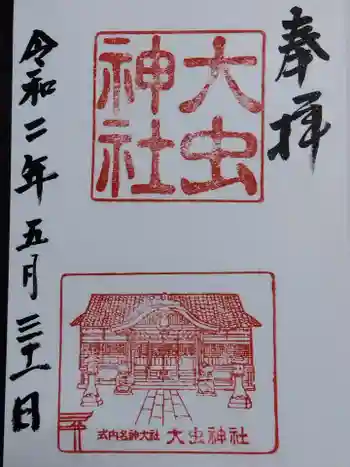 奉拝
大虫
神社
式内名神大社 大虫神社
令和二年五月三十一日